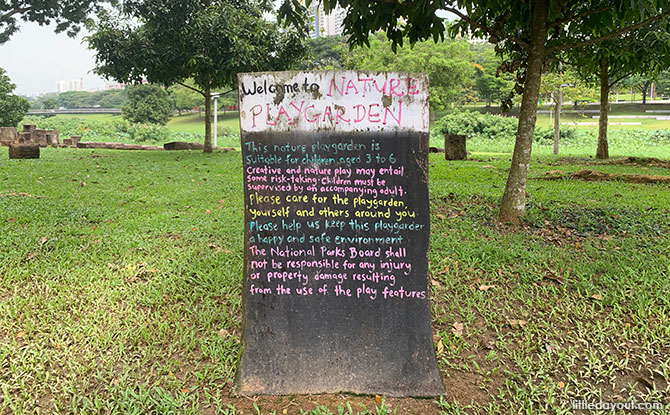 Welcome to NATURE
PLAYGARDEN
This nature playgarden is
suitable for children, aged 3 to 6
Creative and nature play may entail
some risk-taking. Children must be
supervised by an accompanying adult.
Please care for the playgarden,
yourself and others around you
Please help us keep this playgarden
a happy and safe environment
The National Parks Board shall
not be responsible for any injury
or property damage resulting
from the use of the play features
littledayout.com